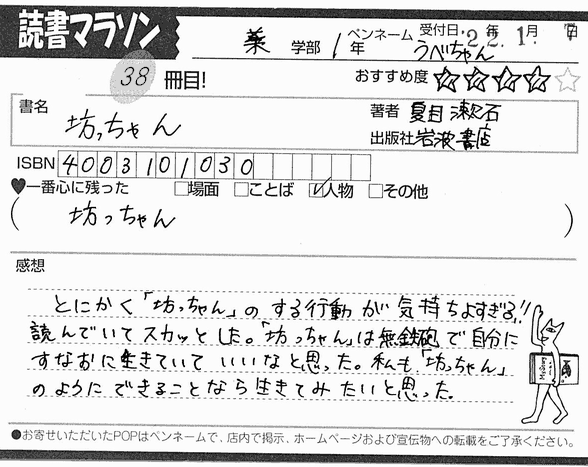 読書マラソン
薬 学部 1年 ペンネーム うべちゃん 受付日 '22年 1月 7日
38 冊目! おすすめ度 ★★★★☆
書名 坊っちゃん
著者 夏目漱石
出版社 岩波書店
ISBN 4003101030
♥一番心に残った □場面 □ことば ☑人物 □その他
( 坊っちゃん )
感想
とにかく「坊っちゃん」のする行動が気持ちよすぎる!!
読んでいてスカッとした。「坊っちゃん」は無鉄砲で自分に
すなおに生きていていいなと思った。私も「坊っちゃん」
のようにできることなら生きてみたいと思った。
●お寄せいただいたPOPはペンネームで、店内で掲示、ホームページおよび宣伝物への転載をご了承ください。